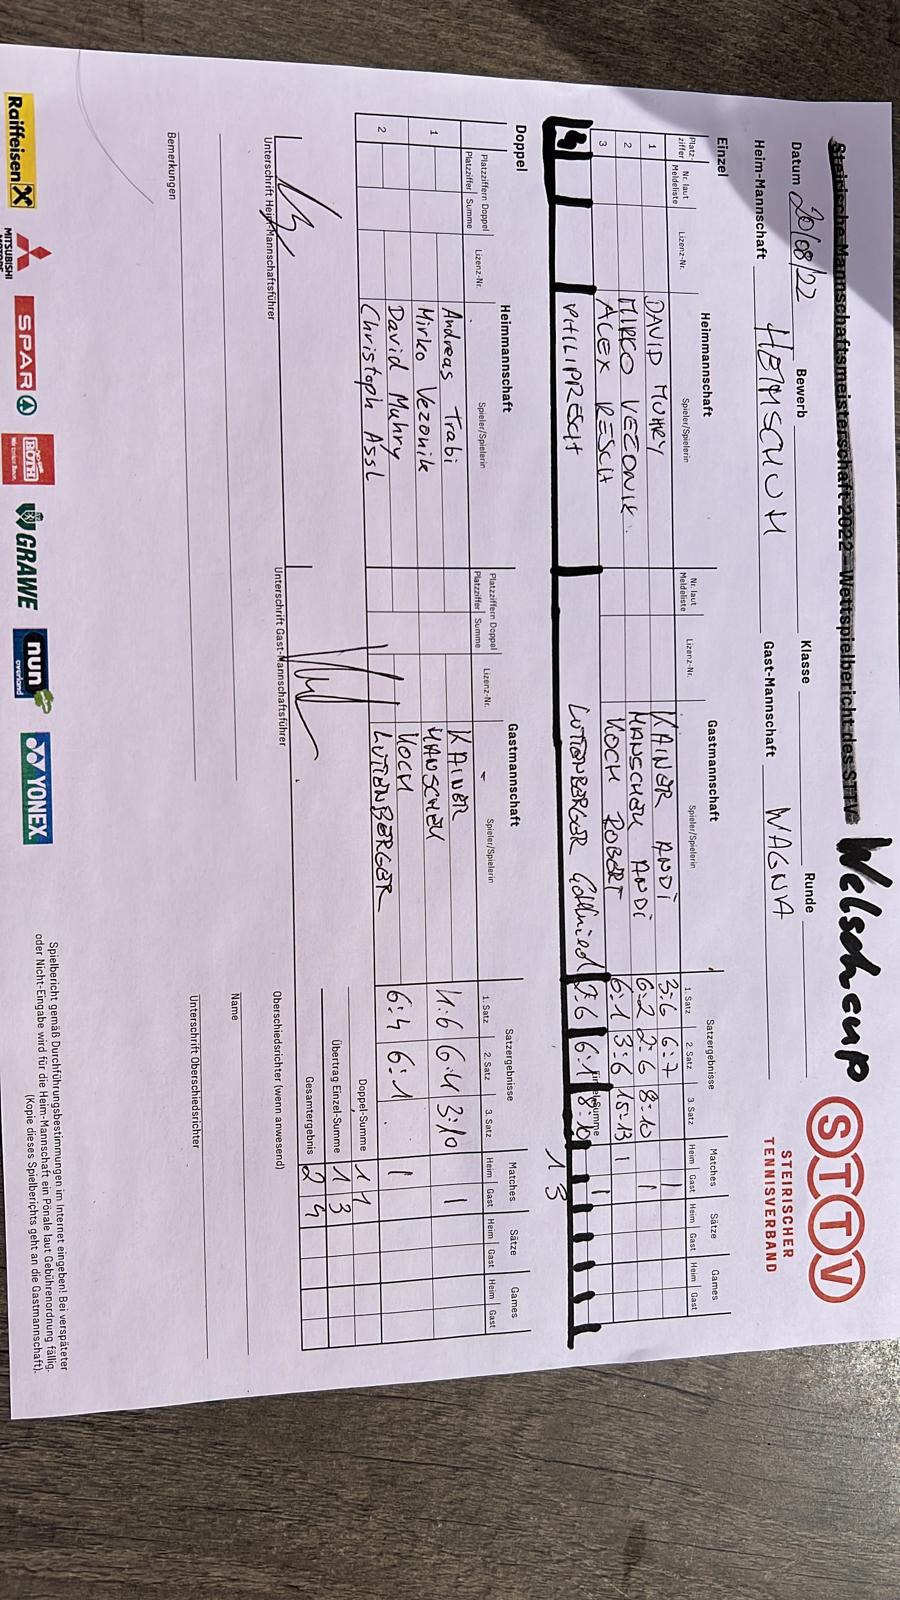 Steirische Mannschaftsmeisterschaft 2022 - Wettspielbericht des STTV
Welsch cup
STTV
STEIRISCHER
TENNISVERBAND
Datum 20/08/22 Bewerb Klasse Runde
Heim-Mannschaft HEIMSCHUH Gast-Mannschaft WAGNA
Einzel Heimmannschaft Gastmannschaft Satzergebnisse Matches Sätze Games
Platz-ziffer Nr. laut Meldeliste Lizenz-Nr. Spieler/Spielerin Nr. laut Meldeliste Lizenz-Nr. Spieler/Spielerin 1. Satz 2. Satz 3. Satz Heim Gast Heim Gast Heim Gast
1 DAVID MUHRY KAINER ANDI 3:6 6:7 1
2 MIRKO VEZONIK HANSCHEK ANDI 6:2 2:6 8:10 1
3 ALEX RESCH KOCH ROBERT 6:1 3:6 15:13 1
4 PHILIPP RESCH LUTTENBERGER Gottfried 2:6 6:1 8:10 1
1 3
Doppel Heimmannschaft Gastmannschaft Satzergebnisse Matches Sätze Games
Platzziffern Doppel Platzziffer Summe Lizenz-Nr. Spieler/Spielerin Platzziffern Doppel Platzziffer Summe Lizenz-Nr. Spieler/Spielerin 1. Satz 2. Satz 3. Satz Heim Gast Heim Gast Heim Gast
1 Andreas Trabi KAINER 4:6 6:4 3:10 1
Mirko Vezonik HANSCHEK
2 David Muhry KOCH 6:4 6:1 1
Christoph Assl LUTTENBERGER
Doppel-Summe 1 1
Übertrag Einzel-Summe 1 3
Gesamtergebnis 2 4
Unterschrift Heim-Mannschaftsführer Unterschrift Gast-Mannschaftsführer Oberschiedsrichter (wenn anwesend)
Name
Bemerkungen Unterschrift Oberschiedsrichter
Spielbericht gemäß Durchführungsbestimmungen im Internet eingeben! Bei verspäteter
oder Nicht-Eingabe wird für die Heim-Mannschaft ein Pönale laut Gebührenordnung fällig.
(Kopie dieses Spielberichts geht an die Gastmannschaft).
Raiffeisen MITSUBISHI MOTORS SPAR ROTH GRAWE nun overland YONEX